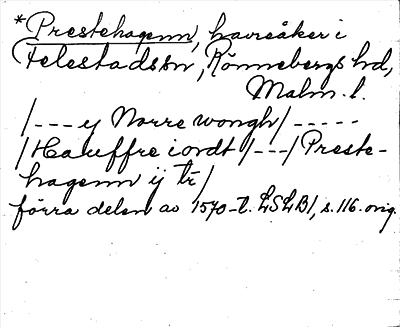 *Prestehagenn, havreåker i
Felestads sn, Rönnebergs hd,
Malm. l.
/--- y Norre wongh/-----
/Hauffre iordt/---/Preste-
hagenn ij tr/
förra delen av 1570-t. LSLB1, s. 116. orig.